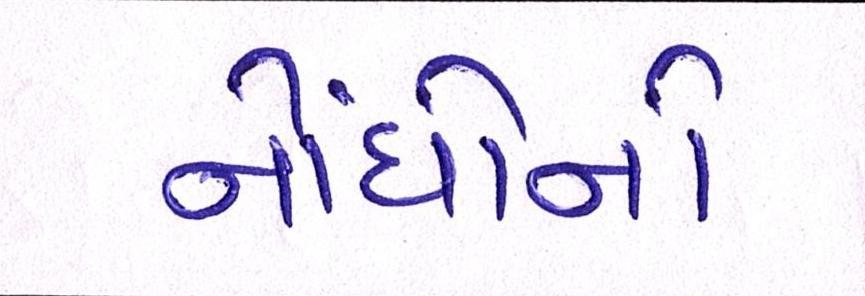 નોંધોનો